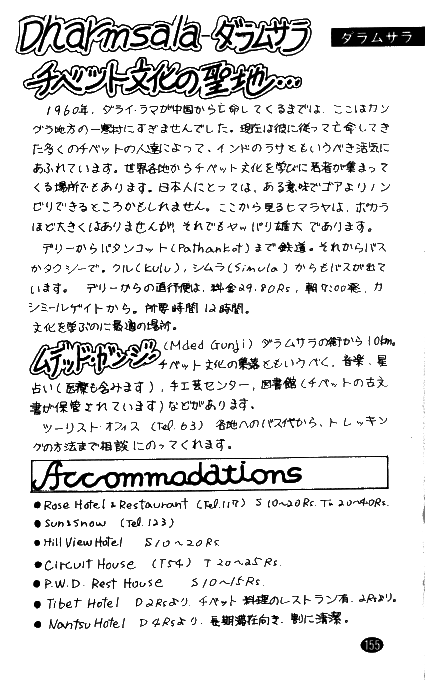 Dharmsala-ダラムサラ
ダラムサラ
チベット文化の聖地…
1960年、ダライ・ラマが中国から亡命してくるまでは、ここはカン
グラ地方の一寒村にすぎませんでした。現在は彼に従って亡命してき
た多くのチベットの人達によって、インドのラサともいうべき活気に
あふれています。世界各地からチベット文化を学びに若者が集まって
くる場所でもあります。日本人にとっては、ある意味でゴアよりノン
ビリできるところかもしれません。ここから見るヒマラヤは、ポカラ
ほど大きくはありませんが、それでもヤッパリ雄大であります。
デリーからパタンコット(Pathankot)まで鉄道。それからバス
かタクシーで。クル(Kulu)、シムラ(Simula)からもバスが出て
います。デリーからの直行便は、料金29.80Rs、朝7:00発、カ
シミールゲイトから。所要時間12時間。
文化を学ぶのに最適の場所。
ムデッド・ガンジ。(Mded Gunji) ダラムサラの街から10km。
チベット文化の集落ともいうべく、音楽、星
占い(医療も含みます)、手工芸センター、図書館(チベットの古文
書が保管されています)などがあります。
ツーリスト・オフィス (Tel.63) 各地へのバス代から、トレッキン
グの方法まで相談にのってくれます。
Accommodations
●Rose Hotel & Restaurant (Tel.117) S 10~20Rs. Tw 20~40Rs.
●Sun&Snow (Tel.123)
●Hill View Hotel S 10~20Rs
●Circuit House (T54) T 20~25Rs.
●P.W.D. Rest House S 10~15Rs.
●Tibet Hotel D 2Rsより、チベット料理のレストラン有、2Rsより。
●Nantsu Hotel D 4Rsより、長期滞在向き、割に清潔。
155